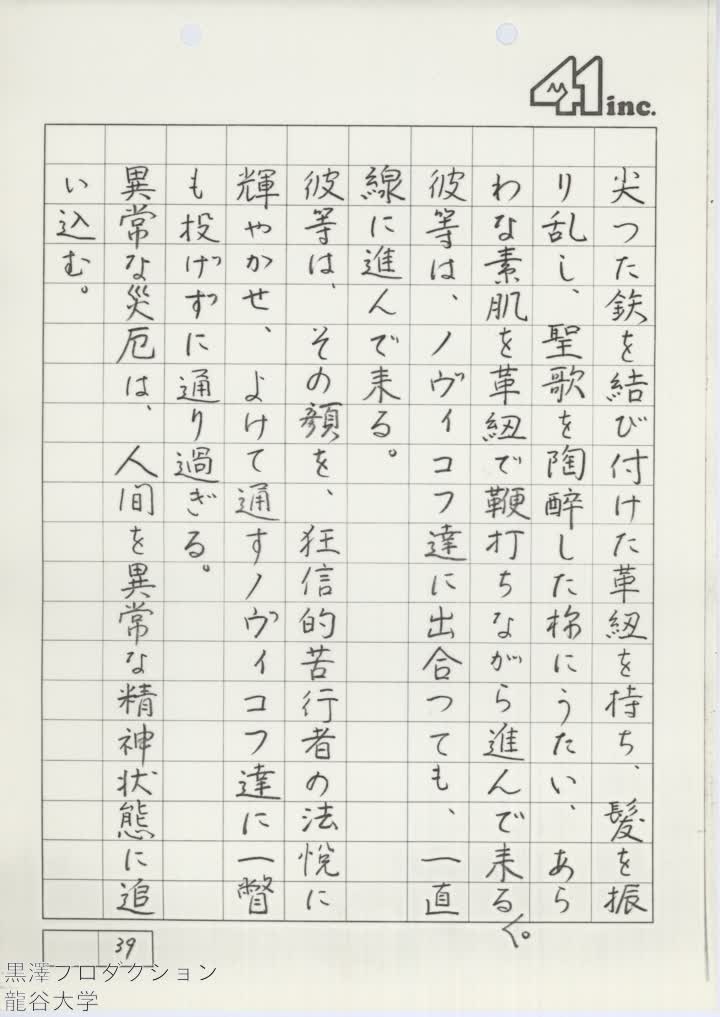 41 inc.
尖つた鉄を結び付けた革紐を持ち、髪を振
り乱し、聖歌を陶酔した様にうたい、あら
わな素肌を革紐で鞭打ちながら進んで来る。
彼等は、ノヴィコフ達に出合つても、一直
線に進んで来る。
彼等は、その顔を、狂信的苦行者の法悦に
輝やかせ、よけて通すノヴィコフ達に一瞥
も投げずに通り過ぎる。
異常な災厄は、人間を異常な精神状態に追
い込む。
39
黒澤プロダクション
龍谷大学